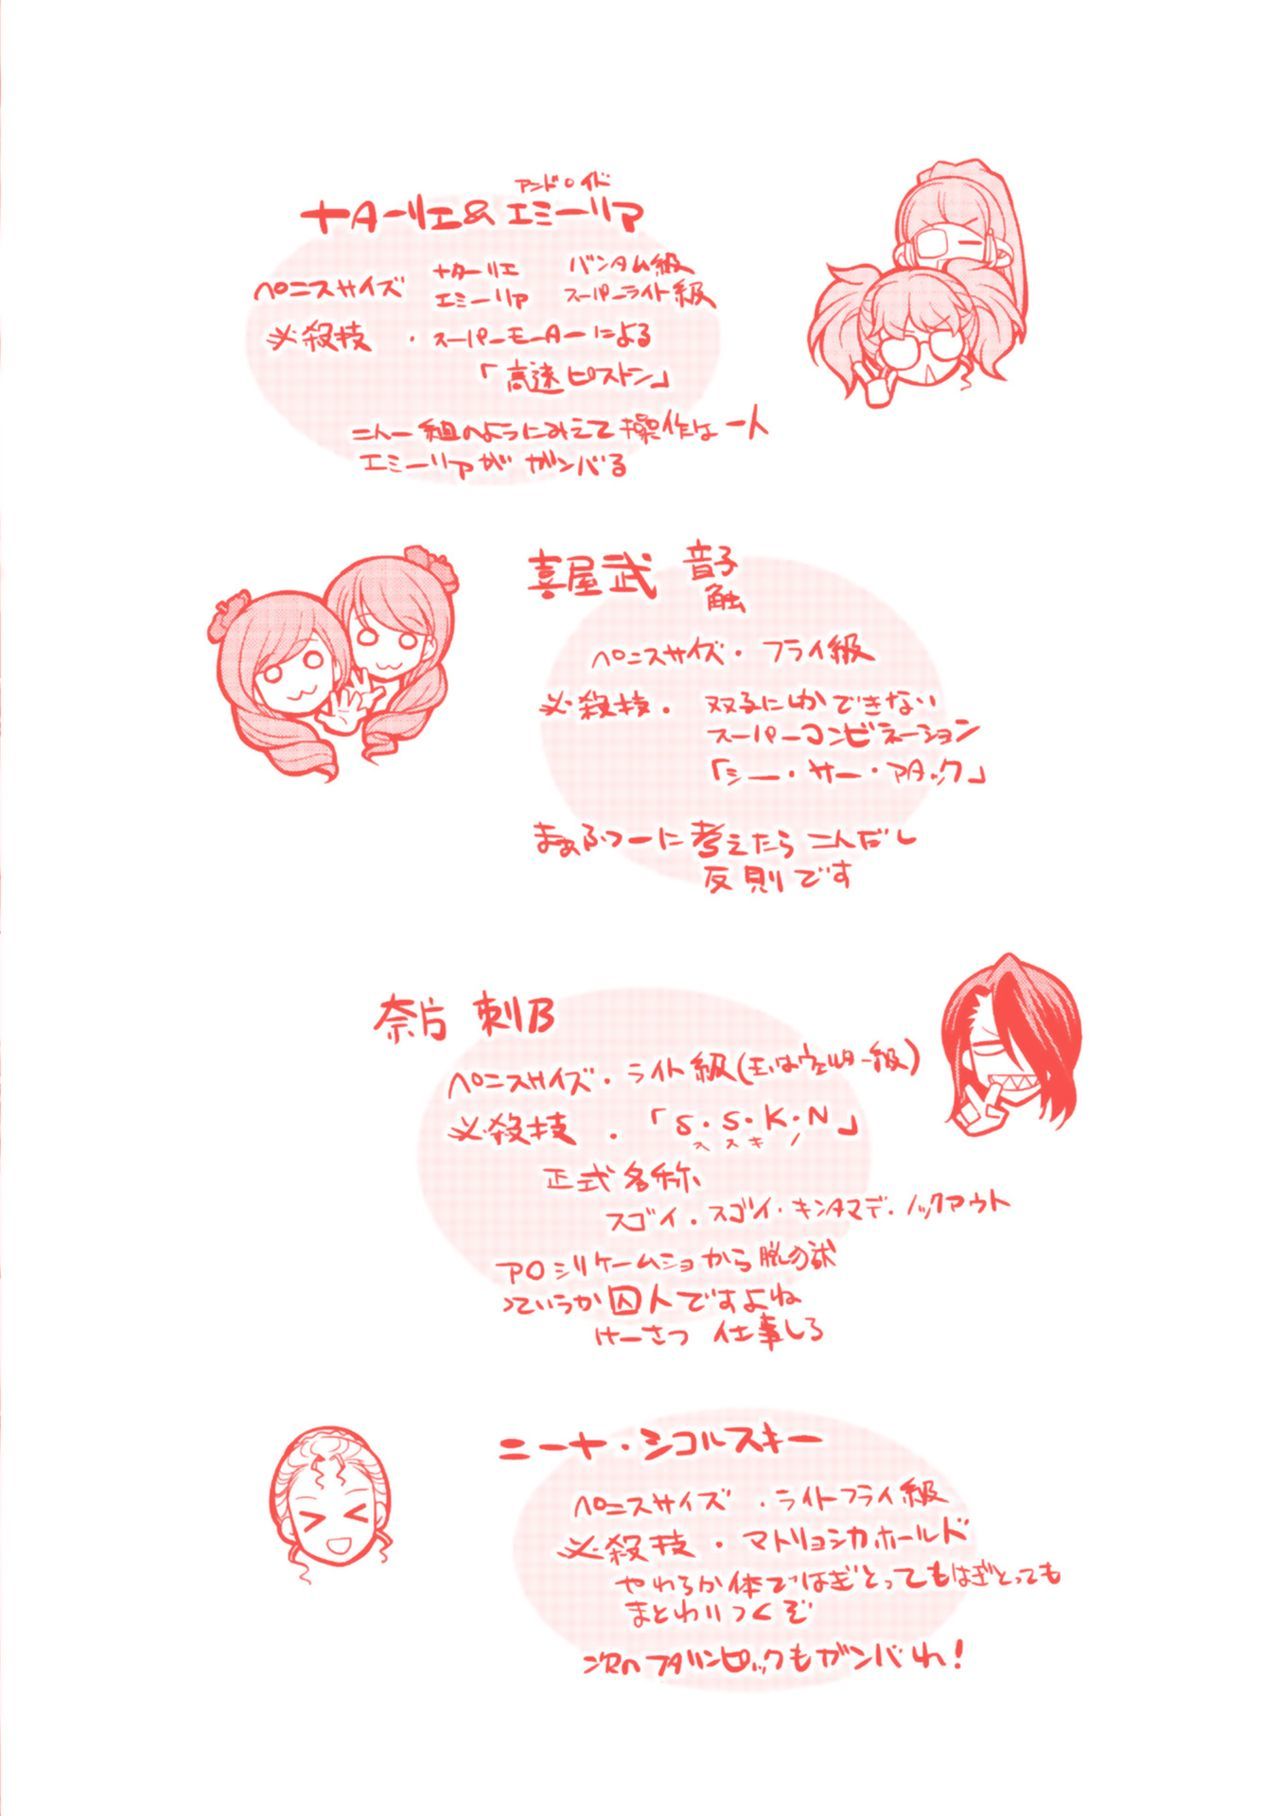 アンド○イド
ナターリエ&エミーリア
ペニスサイズ ナターリエ バンタム級
エミーリア スーパーライト級
必殺技・スーパーモーターによる
「高速ピストン」
二人一組のようにみえて操作は一人
エミーリアががンバる
喜屋武 音子
触
ペニスサイズ・フライ級
必殺技・双子にしかできない
スーパーコンビネーション
「シー・サー・アタック」
まぁふつーに考えたら二人だし
反則です
奈片 刺B
ペニスサイズ・ライト級(玉はウェルター級)
必殺技・「S・S・K・N」
ススキノ
正式名称
スゴイ・スゴイ・キンタマデ・ノックアウト
アO シリケームショから脱の獄
っていうか囚人ですよね
けーさつ 仕事しろ
ニーナ・シコルスキー
ペニスサイズ・ライトフライ級
必殺技・マトリョシカホールド
やわらか体ではぎとってもはぎとっても
まとわりつくぞ
次のフタリンピックもガンバれ!